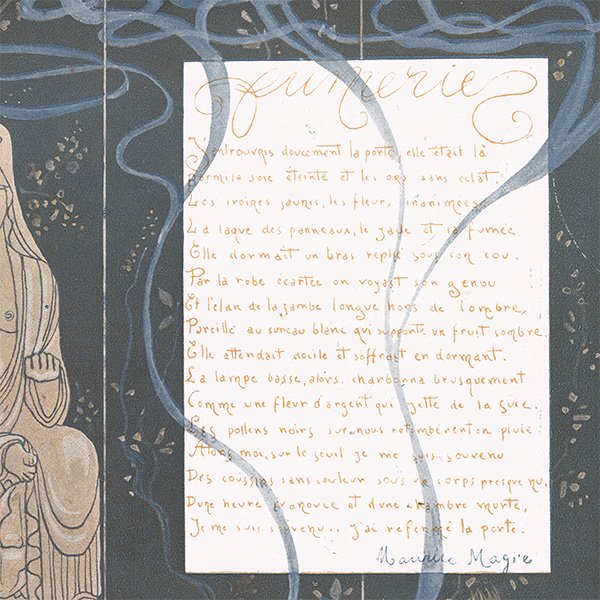 fumerie
J'entrouvris doucement la porte, elle était là
Parmi la soie éteinte et les ors sans éclat,
Les ivoires jaunis, les fleurs inanimées,
La laque des panneaux, le jade et la fumée
Elle dormait un bras replié sous son cou.
Par la robe écartée on voyait son genou
Et l'élan de la jambe longue hors de l'ombre,
Pareille au sureau blanc qui supporte un fruit sombre.
Elle attendait docile et s'offrait en dormant.
La lampe basse, alors, charbonna brusquement
Comme une fleur d'argent qui jette de la suie.
Les pollens noirs sur nous retombèrent en pluie
Alors moi, sur le seuil je me suis souvenu
Des coussins sans couleur sous un corps presque nu,
D'une heure et d'une chambre morte,
Je me suis souvenu... j'ai refermé la porte.
Maurice Magre